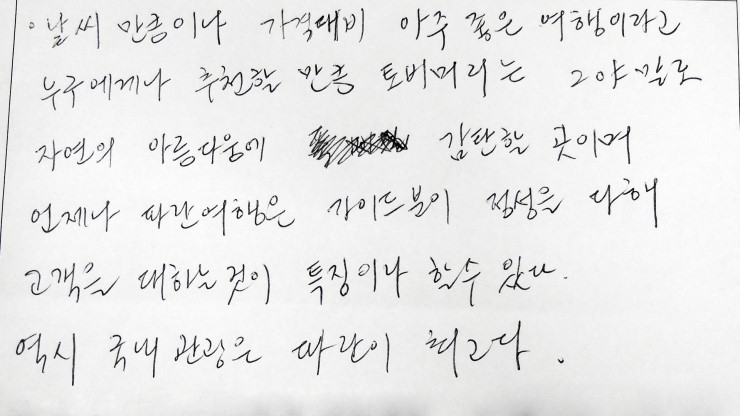 ·날씨 만큼이나 가격대비 아주 좋은 여행이라고
누구에게나 추천할 만큼 토버머리는 그야말로
자연의 아름다움에 감탄할 곳이며
언제나 파란여행은 가이드분이 정성을 다해
고객을 대하는것이 특징이나 할수 있다.
역시 국내 관광은 파란이 최고다.